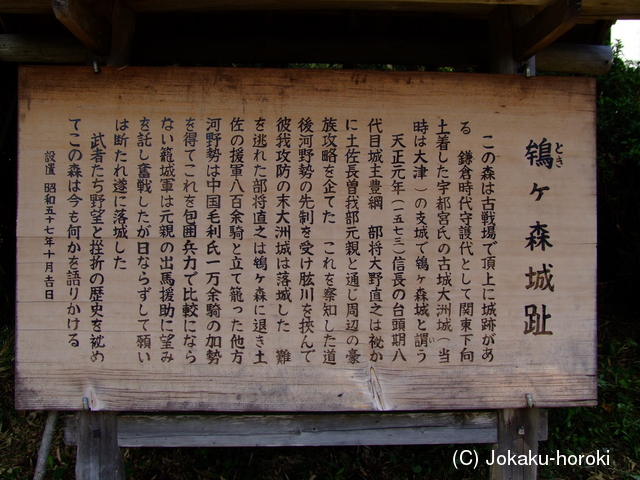 鴇ヶ森城趾
とき
この森は古戦場で頂上に城跡があ
る　鎌倉時代守護代として関東下向
土着した宇都宮氏の古城大洲城（当
時は大津）の支城で鴇ヶ森城と謂う
天正元年（一五七三）信長の台頭期八
代目城主豊綱　部将大野直之は秘か
に土佐長曽我部元親と通じ周辺の豪
族攻略を企てた　これを察知した道
後河野勢の先制を受け肱川を挟んで
彼我攻防の末大洲城は落城した　難
を逃れた部将直之は鴇ヶ森に退き土
佐の援軍八百余騎と立て籠った他方
河野勢は中国毛利氏一万余騎の加勢
を得てこれを包囲兵力で比較になら
ない籠城軍は元親の出馬援助に望み
を託し奮戦したが日ならずして願い
は断たれ遂に落城した
武者たち野望と挫折の歴史を祕め
てこの森は今も何かを語りかける
設置　昭和五十七年十月吉日
(C) Jokaku-horoki